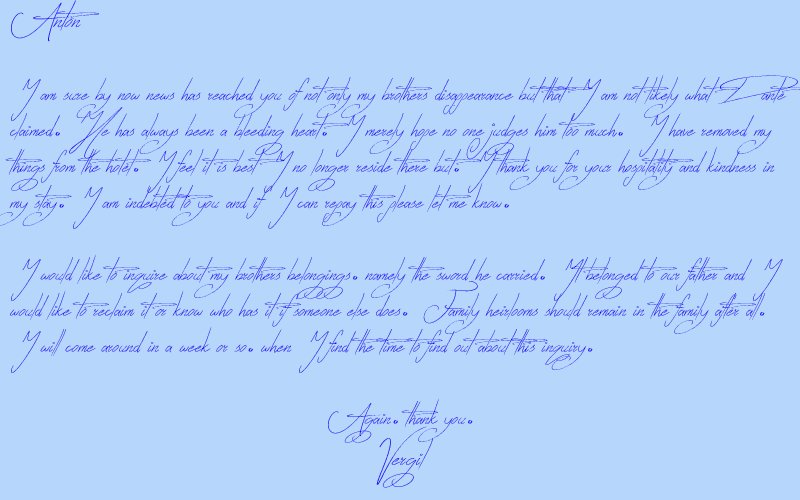 Anton
I am sure by now news has reached you of not only my brothers disappearance but that I am not likely what Dante
claimed. He has always been a bleeding heart. I merely hope no one judges him too much. I have removed my
things from the hotel. I feel it is best I no longer reside there but. I thank you for your hospitality and kindness in
my stay. I am indebted to you and if I can repay this please let me know.
I would like to inquire about my brothers belongings. namely the sword he carried. It belonged to our father and I
would like to reclaim it or know who has it if someone else does. Family heirlooms should remain in the family after all.
I will come around in a week or so. when I find the time to find out about this inquiry.
Again. thank you.
Vergil